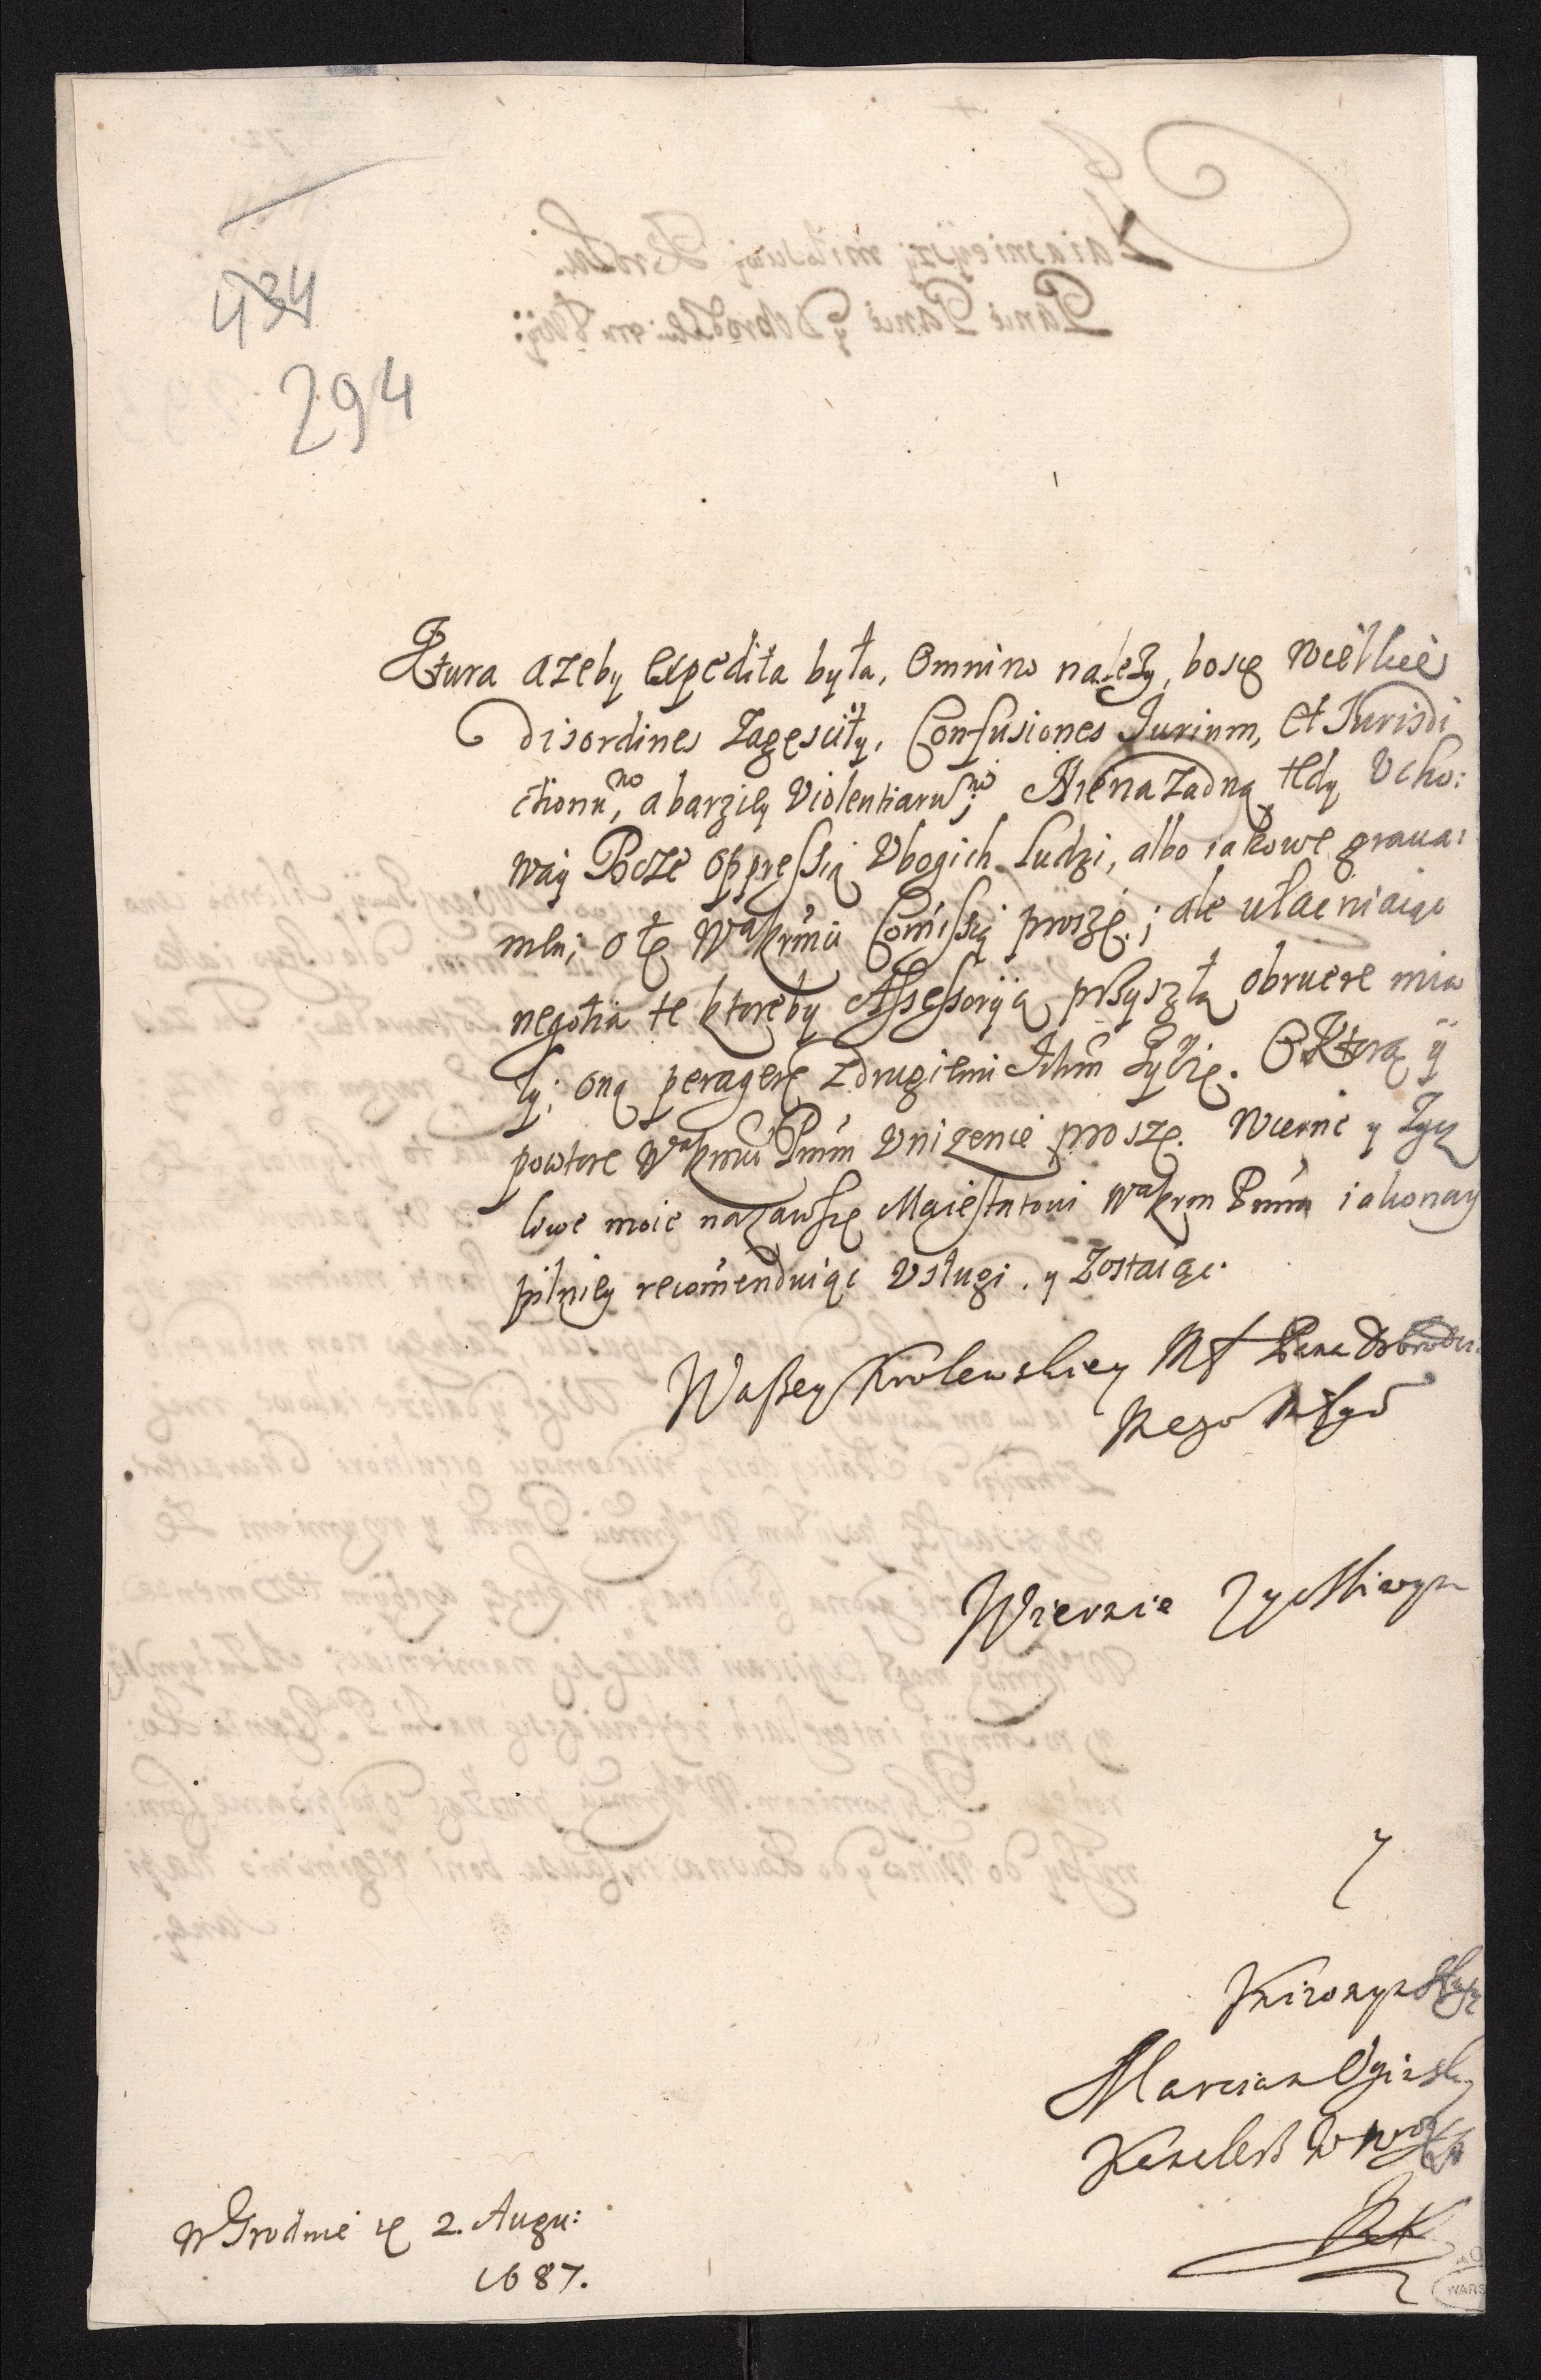 434
294
Ktura azeby expedita była, Omnino nalezy, bosię wielkie
disordines zagęsciły, Confusiones Jurium, Et Jurisdi
ctionū, abarziey Violentiarū; Niena zadną tedy Ucho:
way Boze oppressią Ubogich ludzi, albo iakowe graua:
mēn; O tę WaKrmći Comissią proszę; ale ułacniaiąc
negotia te ktoreby Assessoryią przyszłą obruere mia
ły; oną peragere zdrugiemi Ichm życzę. O Ktorą ÿ
powtore WaKrmći Pmm Unizenie proszę. Wierne y Zycz
liwe moie nazawsze Maiestatowi WaKrm Pmm iakonay
pilniey recomenduiąc Usługi. y Zostaiąc.
Waszey Krolewskiey Mć Pana Dobrodzie
Mego Mſgo
Wiernie Zyczliwym
y
Nizonym Sługą
Marcian Oginsky
Kanclerz W W X L
W Grodnie 2. Augu:
1687.
WARS